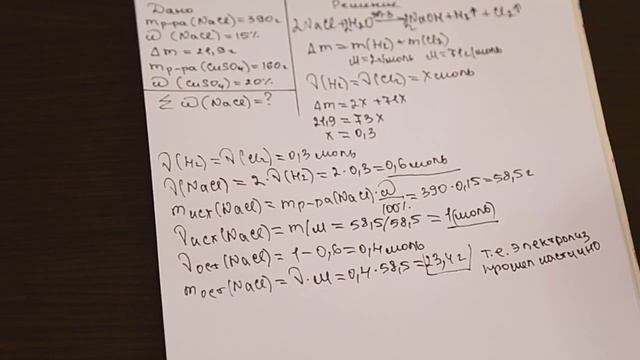 Дано
mр-ра(NaCl)=390г
ω (NaCl)=15%
Δm=21,9г
mр-ра(CuSO₄)=160г
ω (CuSO₄)=20%
Σ ω(NaCl)=?
Решение
2NaCl+2H₂O → 2NaOH+H₂↑+Cl₂↑
Δm=m(H₂)+m(Cl₂)
M=2г/моль M=71г/моль
ν(H₂)=ν(Cl₂)=x моль
Δm=2x+71x
21,9=73x
x=0,3
ν(H₂)=ν(Cl₂)=0,3 моль
ν(NaCl)=2·ν(H₂)=2·0,3=0,6 моль
mисх(NaCl)=mр-ра(NaCl)·ω/100%=390·0,15=58,5г
νисх(NaCl)=m/M=58,5/58,5=1(моль)
νост(NaCl)=1-0,6=0,4 моль
mост(NaCl)=ν·M=0,4·58,5=23,4г т.е. электролиз
прошел частично